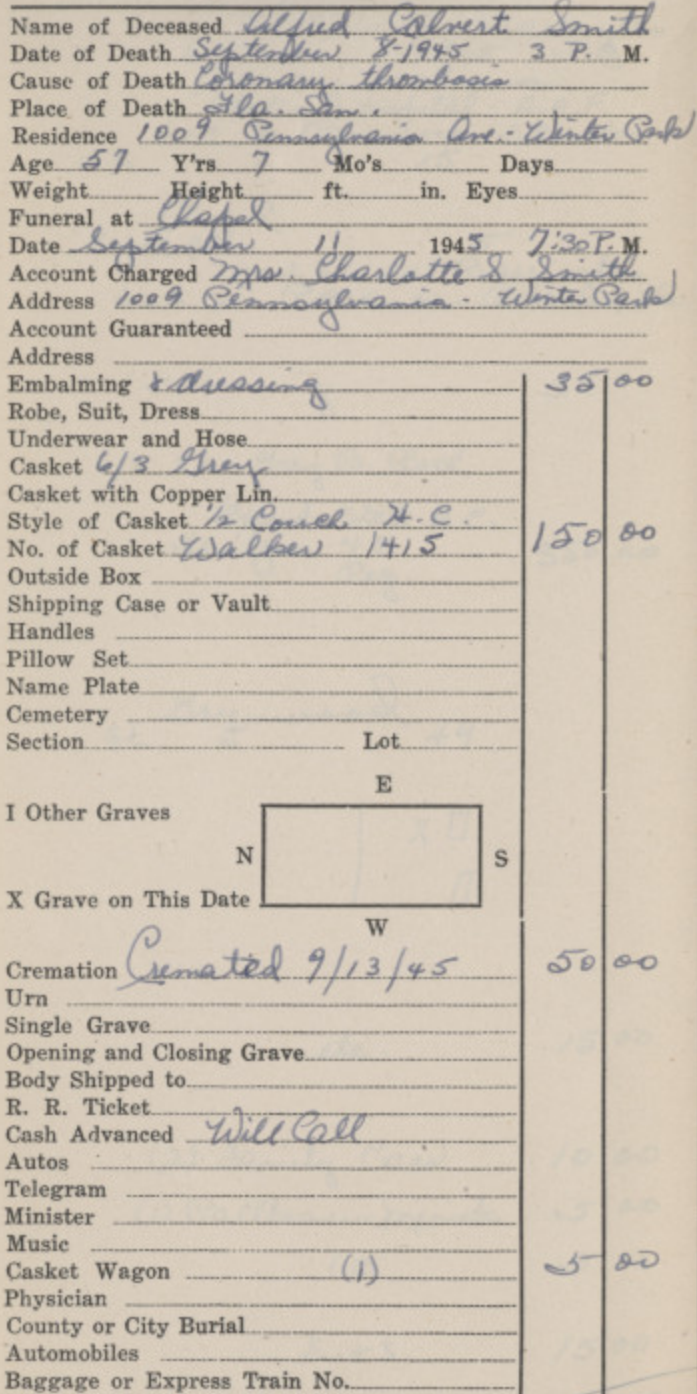 Name of Deceased Alfred Calvert Smith
Date of Death September 8-1945 3 P. M.
Cause of Death Coronary thrombosis
Place of Death Fla. San.
Residence 1009 Pennsylvania Ave. - Winter Park
Age 57 Y'rs 7 Mo's Days
Weight Height ft. in. Eyes
Funeral at Chapel
Date September 11 1945 7:30 P. M.
Account Charged Mrs. Charlotte S Smith
Address 1009 Pennsylvania - Winter Park
Account Guaranteed
Address
Embalming & dressing 35 00
Robe, Suit, Dress
Underwear and Hose
Casket 6/3 Grey
Casket with Copper Lin.
Style of Casket 1/2 Couch H.C.
No. of Casket Walker 1415 150 00
Outside Box
Shipping Case or Vault
Handles
Pillow Set
Name Plate
Cemetery
Section Lot
E
I Other Graves
N S
X Grave on This Date
W
Cremation Cremated 9/13/45 50 00
Urn
Single Grave
Opening and Closing Grave
Body Shipped to
R. R. Ticket
Cash Advanced Will Call
Autos
Telegram
Minister
Music
Casket Wagon (1) 5 00
Physician
County or City Burial
Automobiles
Baggage or Express Train No.